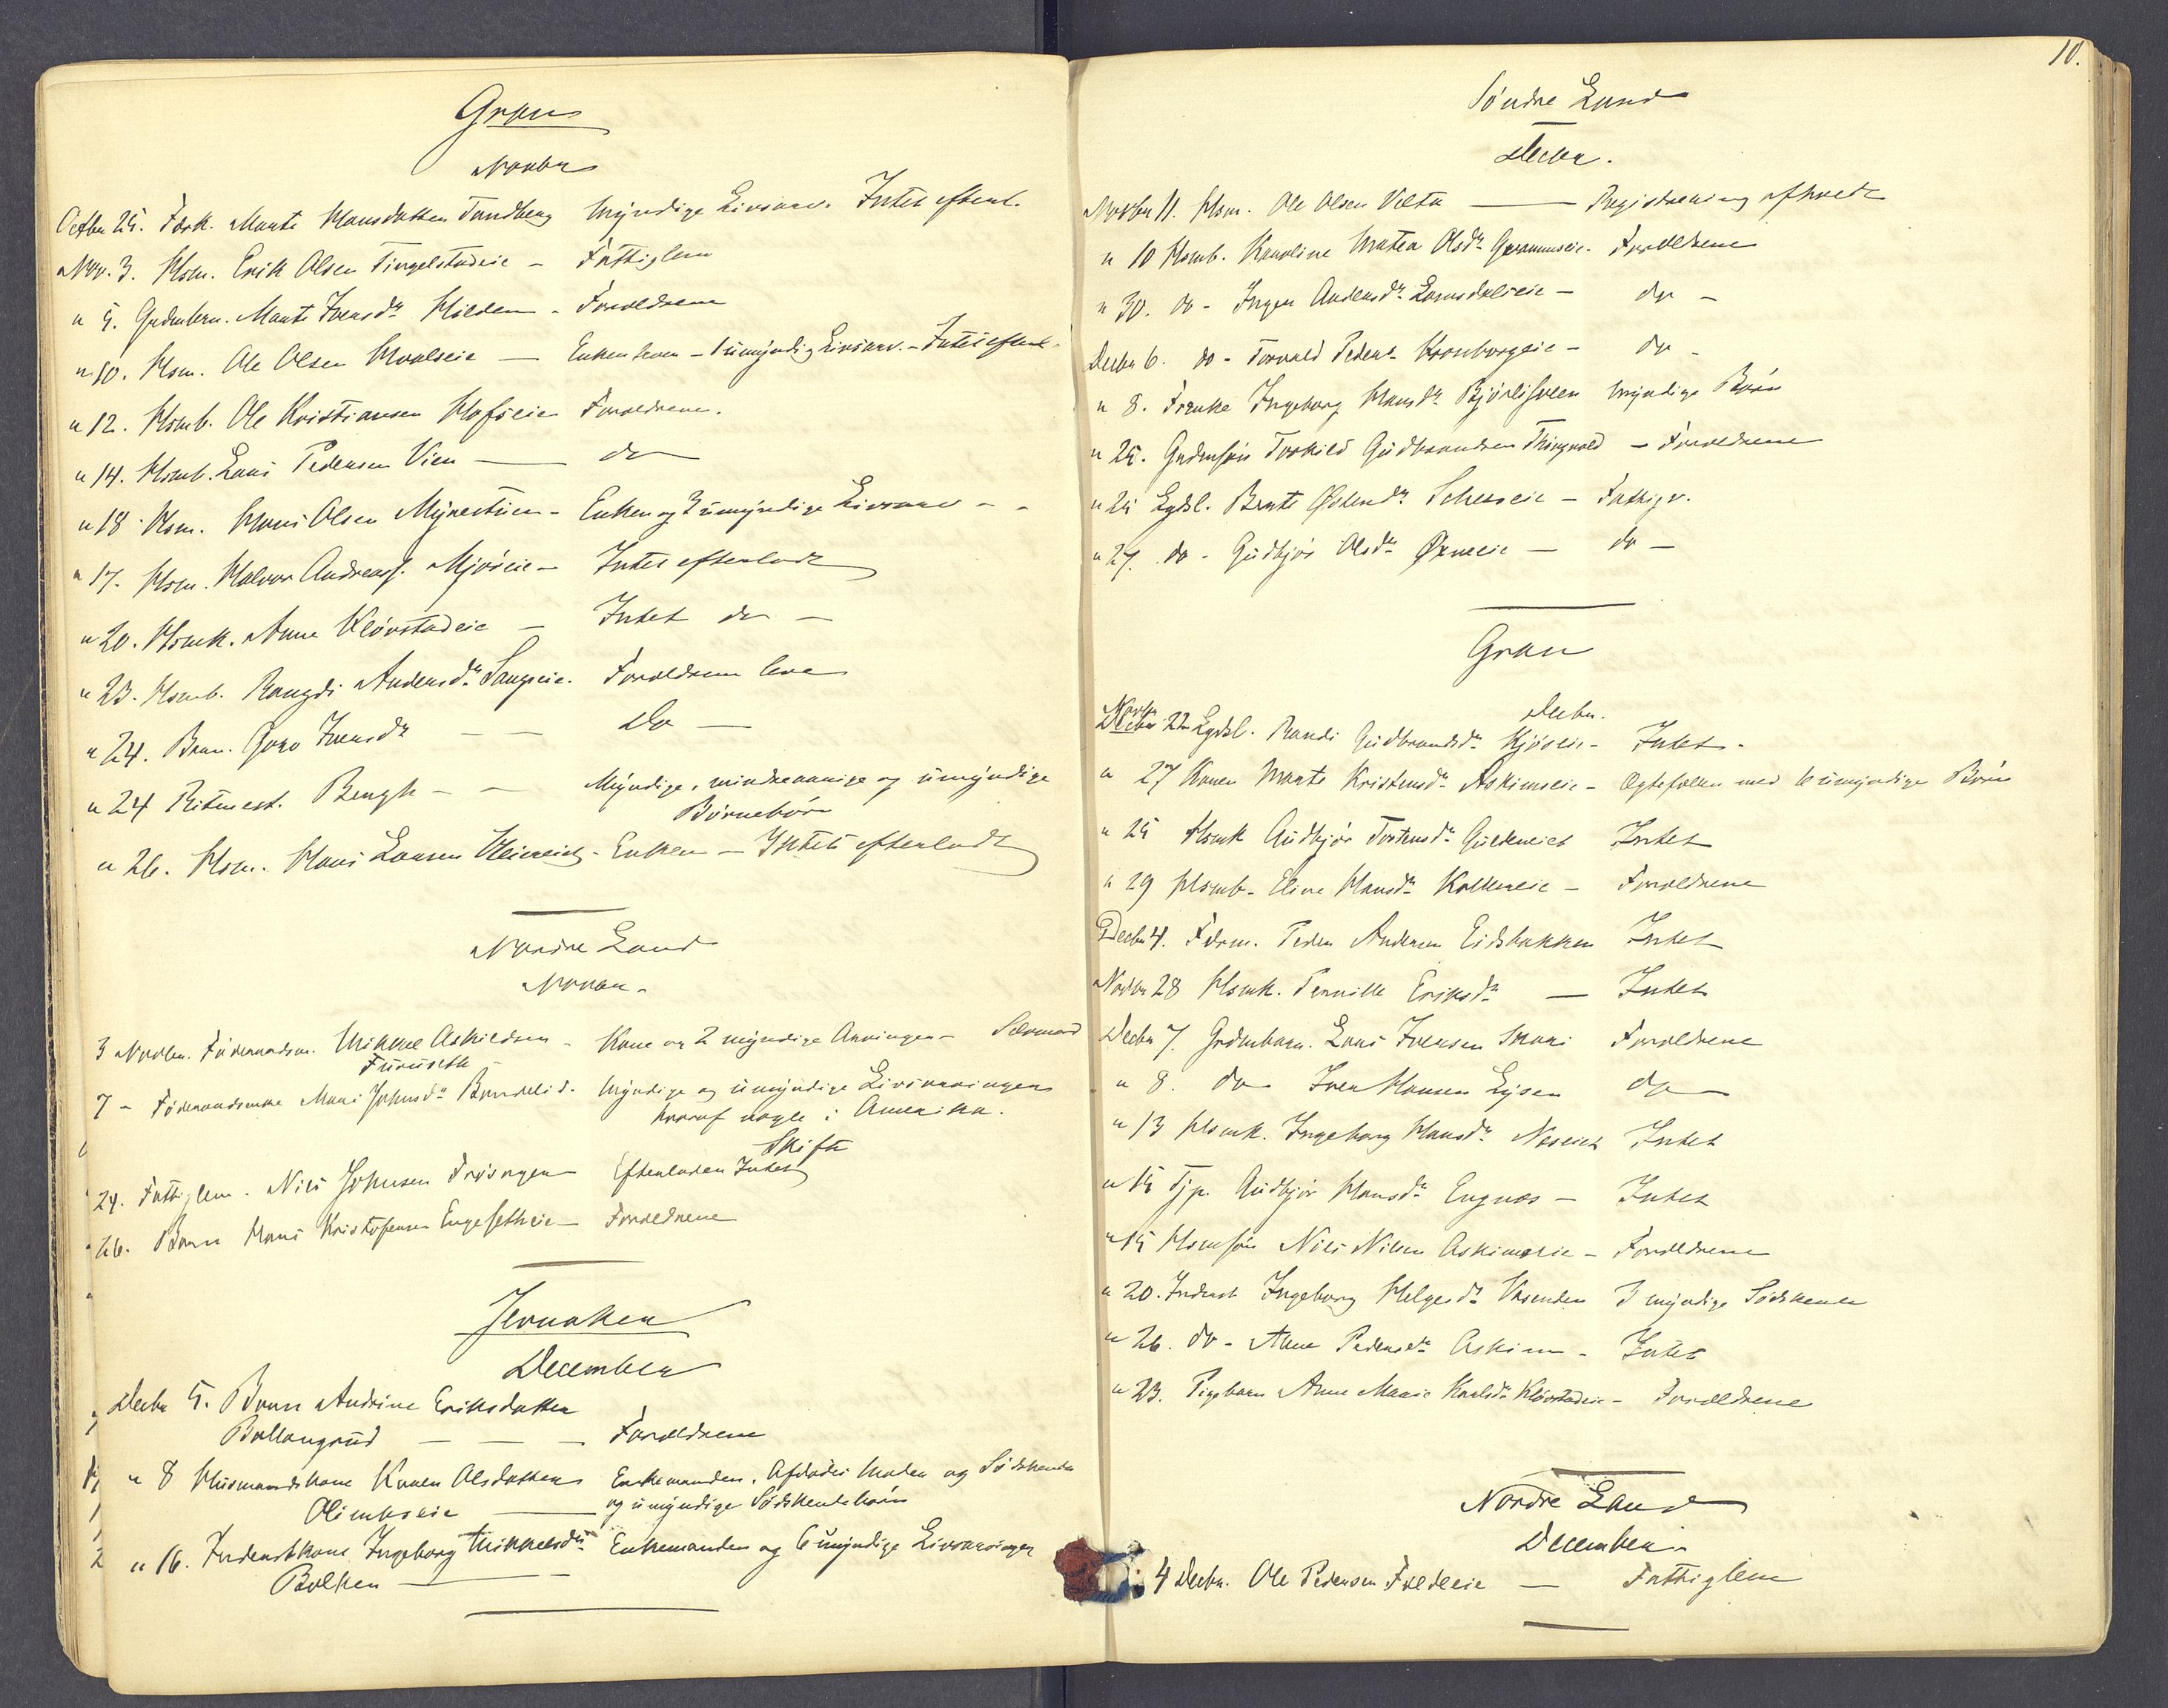 Gran
Novbr
Octbr 25. Fdrk. Marte Hansdatter Tandberg Myndige Livsarv. Intet efterl.
Nov. 3. Hsm. Erik Olsen Tingelstadeie - Fattiglem
" 5. Grdmbrn. Marte Iversdr Hilden - Forældrene
" 10. Hsm. Ole Olsen Hvalseie — Enken lever - 1 umyndig Livsarv. - Intet efterl.
" 12. Hsmb. Ole Kristiansen Hofseie Forældrene.
" 14. Hsmb. Lars Pedersen Vien — do
" 18 Hsm. Hans Olsen Myrestuen - Enken og 3 umyndige Livsarv - -
" 17. Hsm. Halvor Andreass. Mjøreie - Intet efterladt
" 20. Hsmk. Anne Kløvstadeie — Intet do —
" 23. Hsmb. Rangdi Andersdr Sangeie. Forældrene leve
" 24. Barn. Goro Iversdr — — Do —
" 24 Ritmest. Bergh - — Myndige, mindreaarige og umyndige
Børnebørn
" 26. Hsm. Hans Larsen - Enken — Intet efterladt
Nordre Land
Novbr.
3 Novbr. Føderaadsm. Mikkel Askildsen - Kone og 2 myndige Arvinger -
Furuseth
7 - Føderaadsenke Mari Johnsdr Myndige og umyndige Livsarvinger
hvoraf nogle i Amerika.
Skifte
24. Fattiglem. Nils Johnsen Efterlader Intet
26. Barn Hans Kristofersen Engesetheie — Forældrene
Jevnaker
December
Decbr 5. Barn Andrine Eriksdatter
Ballangrud — — — Forældrene
" 8 Husmandskone Karen Olsdatter Enkemanden. Afdødes Moder og Sødskende
Olimhseie — og umyndige Sødskendebørn
" 16. Inderstkone Ingeborg Mikkelsdr Enkemanden og 6 umyndige Livsarvinger
Bolken —
10.
Søndre Land
Decbr.
Novbr 11. Hsm. Ole Olsen Velta — Registrering afholdt
" 10 Hsmb. Karoline Matea Olsdr Forældrene
" 30. do - Inger Andersdr Lomsdaleie — do -
Decbr 6. do - Torvald Peders. Kronborgeie — do -
" 8. Frenke Ingeborg Hansdr Bjørlisveen Myndige Børn
" 25. Grdmsøn Torkild Gudbrandsen Thingvold - Forældrene
" 25 Lgdsl. Berte Østensdr - Fattigv.
" 27. do - Gudbjør Olsdr Øxneeie — do —
Gran
Decbr.
Novbr 22 Lgdsl. Randi Gudbrandsdr Kjøseie - Intet -
" 27 Konen Marte Kristensdr Askimseie - Ægtefællen med 6 umyndige Børn
" 25 Hsmk Gudbjør Torstensdr Guldeneiet Intet
" 29 Hsmb. Eline Hansdr Kolkereie — Forældrene
Decbr 4. Fdrm. Peder Andersen Eidsbakken Intet
Novbr 28 Hsmk. Pernille Eriksdr — Intet
Decbr 7. Grdmbarn. Lars Iversen Forældrene
" 8. do Iver Hansen Lysen do —
" 13 Hsmk. Ingeborg Hansdr Neseiet Intet
" 15 Tjp. Gudbjør Hansdr Engnæs — Intet
" 15 Hsmsøn Nils Nilsen Askimeie — Forældrene
" 20. Inderst Ingeborg Helgesdr Vasenden 3 myndige Sødskende
" 26. do - Anne Pedersdr Askim - Intet
" 23. Pigebarn Anne Marie Karlsdr Kløvstadeie - Forældrene
Nordre Land
December
4 Decbr. Ole Pedersen — Fattiglem